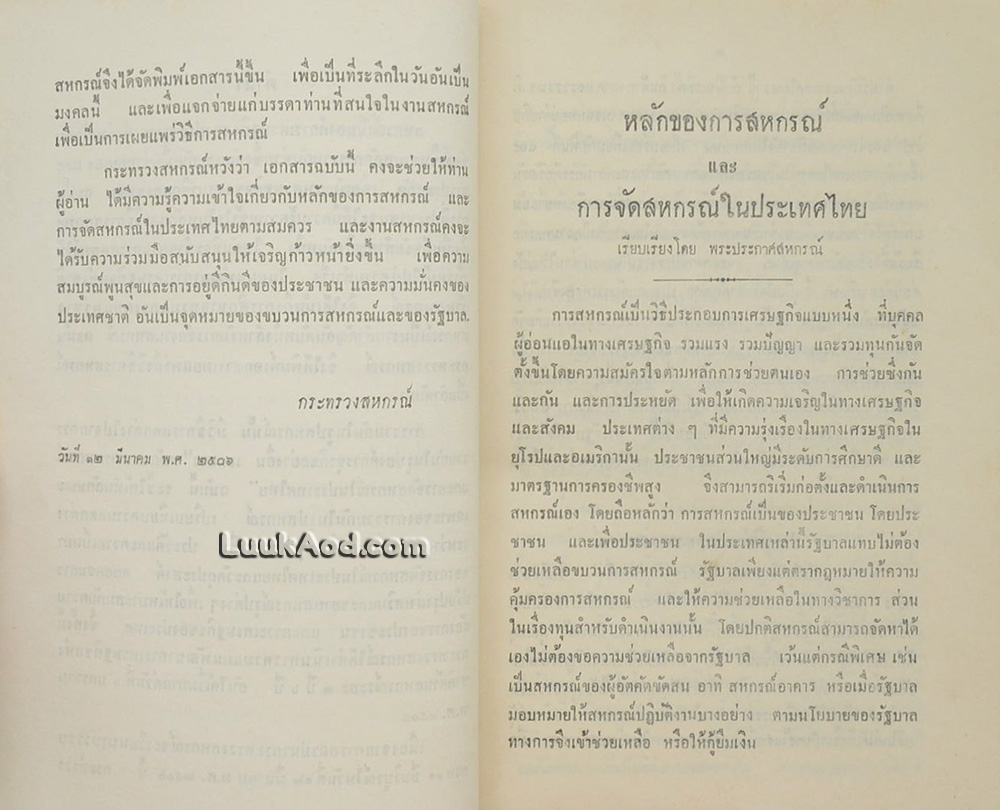 สหกรณ์จึงได้จัดพิมพ์เอกสารนี้ขึ้น เพื่อเป็นที่ระลึกในวันอันเป็น
มงคลนี้ และเพื่อแจกจ่ายแก่บรรดาท่านที่สนใจในงานสหกรณ์
เพื่อเป็นการเผยแพร่วิธีการสหกรณ์
กระทรวงสหกรณ์หวังว่า เอกสารฉบับนี้ คงจะช่วยให้ท่าน
ผู้อ่าน ได้มีความรู้ความเข้าใจเกี่ยวกับหลักของการสหกรณ์ และ
การจัดสหกรณ์ในประเทศไทยตามสมควร และงานสหกรณ์คงจะ
ได้รับความร่วมมือสนับสนุนให้เจริญก้าวหน้ายิ่งขึ้น เพื่อความ
สมบูรณ์พูนสุขและการอยู่ดีกินดีของประชาชน และความมั่นคงของ
ประเทศชาติ อันเป็นจุดหมายของขบวนการสหกรณ์และของรัฐบาล.
กระทรวงสหกรณ์
วันที่ ๑๒ มีนาคม พ.ศ. ๒๕๐๖
LuukAod.com
หลักของการสหกรณ์
และ
การจัดสหกรณ์ในประเทศไทย
เรียบเรียงโดย พระประกาศสหกรณ์
การสหกรณ์เป็นวิธีประกอบการเศรษฐกิจแบบหนึ่ง ที่บุคคล
ผู้อ่อนแอในทางเศรษฐกิจ รวมแรง รวมปัญญา และรวมทุนกันจัด
ตั้งขึ้นโดยความสมัครใจตามหลักการช่วยตนเอง การช่วยซึ่งกัน
และกัน และการประหยัด เพื่อให้เกิดความเจริญในทางเศรษฐกิจ
และสังคม ประเทศต่าง ๆ ที่มีความรุ่งเรืองในทางเศรษฐกิจใน
ยุโรปและอเมริกานั้น ประชาชนส่วนใหญ่มีระดับการศึกษาดี และ
มาตรฐานการครองชีพสูง จึงสามารถริเริ่มก่อตั้งและดำเนินการ
สหกรณ์เอง โดยถือหลักว่า การสหกรณ์เป็นของประชาชน โดยประ
ชาชน และเพื่อประชาชน ในประเทศเหล่านี้รัฐบาลแทบไม่ต้อง
ช่วยเหลือขบวนการสหกรณ์ รัฐบาลเพียงแต่ตรากฎหมายให้ความ
คุ้มครองการสหกรณ์ และให้ความช่วยเหลือในทางวิชาการ ส่วน
ในเรื่องทุนสำหรับดำเนินงานนั้น โดยปกติสหกรณ์สามารถจัดหาได้
เองไม่ต้องขอความช่วยเหลือจากรัฐบาล เว้นแต่กรณีพิเศษ เช่น
เป็นสหกรณ์ของผู้อัตคัดขัดสน อาทิ สหกรณ์อาคาร หรือเมื่อรัฐบาล
มอบหมายให้สหกรณ์ปฏิบัติงานบางอย่าง ตามนโยบายของรัฐบาล
ทางการจึงเข้าช่วยเหลือ หรือให้กู้ยืมเงิน